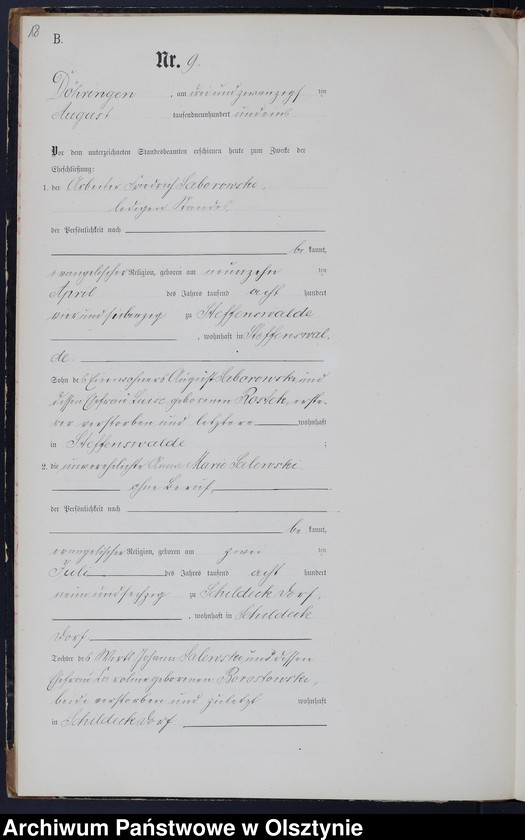 18
B.
Nr. 9.
Döhringen, am dreiundzwanzigsten
August tausendneunhundert undeins
Vor dem unterzeichneten Standesbeamten erschienen heute zum Zwecke der
Eheschließung:
1. der Arbeiter Friedrich Saborowski,
ledigen Standes,
der Persönlichkeit nach
be kannt,
evangelischer Religion, geboren am neunzehn ten
April des Jahres tausend acht hundert
vierundsiebenzig zu Steffenswalde
, wohnhaft in Steffenswal„
de.
Sohn des Einwohners August Saborowski und
dessen Ehefrau geborenen erste„
rer verstorben und letztere wohnhaft
in Steffenswalde ;
2. die unverehelichte Anna Marie Salewski
ohne Beruf,
der Persönlichkeit nach
be kannt,
evangelischer Religion, geboren am zwei ten
Juli des Jahres tausend acht hundert
neunundsechzig zu Schildeck Dorf,
, wohnhaft in Schildeck
Dorf
Tochter des Wirth Johann Salewski und dessen
Ehefrau geborenen
beide verstorben und zuletzt wohnhaft
in Schildeck Dorf
Archiwum Państwowe w Olsztynie